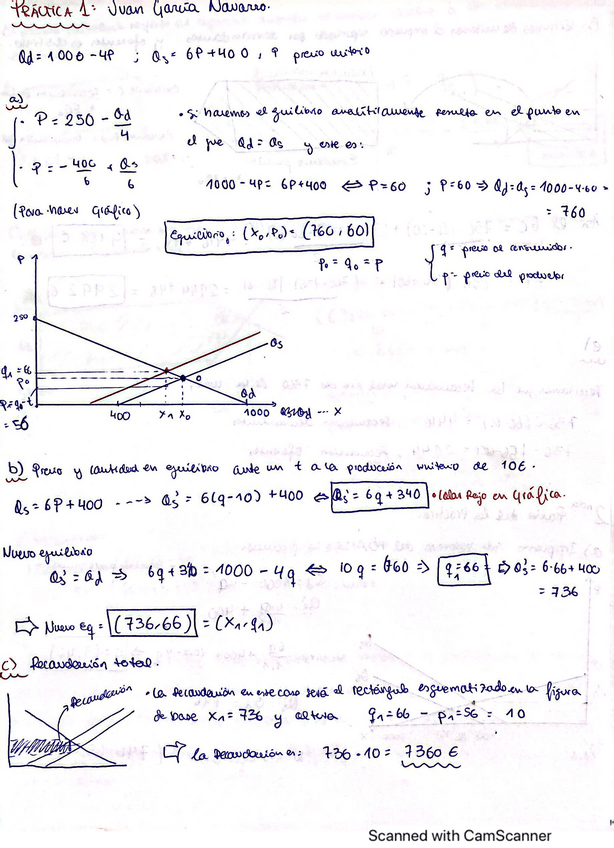 PRÁCTICA 1: Juan García Navarro.
Qd = 1000 - 4P ; Qs = 6P + 400 , P precio unitario
a)
P = 250 - Qd/4
P = - 400/6 + Qs/6
(Para hacer gráfico)
• Si hacemos el equilibrio analíticamente resulta en el punto en
el que Qd = Qs y este es:
1000 - 4P = 6P + 400 ⇔ P = 60 ; P = 60 ⇒ Qd = Qs = 1000 - 4·60 =
= 760
Equilibrio₀ : (X₀, P₀) = (760, 60)
P₀ = q₀ = P
q = precio al consumidor.
p = precio del productor
P
250
q₁ = 66
P₀
= 56
400
X₁
X₀
0
Qd
Qs
1000
... X
b) Precio y cantidad en equilibrio ante un t a la producción unitario de 10€.
Qs = 6P + 400 ---→ Qs' = 6(q - 10) + 400 ⇔ Qs' = 6q + 340 • Color Rojo en Gráfica.
Nuevo equilibrio
Qs' = Qd ⇒ 6q + 340 = 1000 - 4q ⇔ 10q = 660 ⇒ q₁ = 66 ⇨ Qs' = 6·66 + 400
= 736
⇨ Nuevo Eq = (736, 66) = (X₁, q₁)
c) Recaudación total.
Recaudación
• La Recaudación en este caso será el rectángulo esquematizado en la figura
de base X₁ = 736 y altura q₁ = 66 - p₁ = 56 = 10
⇨ la Recaudación es: 736 · 10 = 7360 €
Scanned with CamScanner